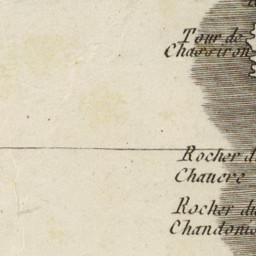 Tour de
Chassiron
Rocher d
Chaucre
Rocher du
Chandoni